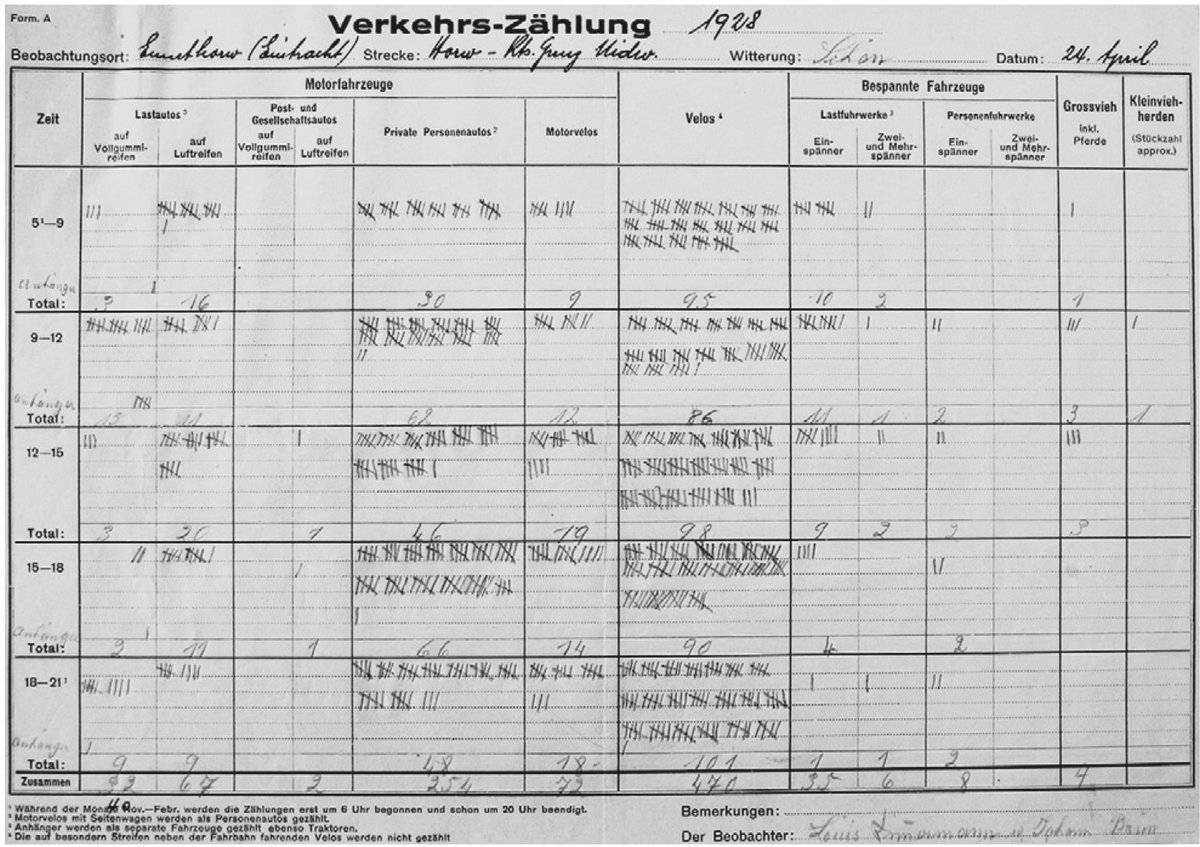 Form. A
Verkehrs-Zählung 1928
Beobachtungsort: Ennethorw (Eintracht) Strecke: Horw - Kts. Grenz Nidw. Witterung: Schön Datum: 24. April
Zeit Motorfahrzeuge Velos ⁴ Bespannte Fahrzeuge Grossvieh inkl. Pferde Kleinviehherden (Stückzahl approx.)
Lastautos ³ Post- und Gesellschaftsautos Private Personenautos ² Motorvelos Lastfuhrwerke ³ Personenfuhrwerke
auf Vollgummireifen auf Luftreifen auf Vollgummireifen auf Luftreifen Einspänner Zwei- und Mehrspänner Einspänner Zwei- und Mehrspänner
5¹—9
Anhänger
Total: 3 16 30 9 95 10 2 1
9—12
Anhänger
Total: 15 11 62 12 86 11 1 2 3 1
12—15
Total: 3 20 1 46 19 98 9 2 2 3
15—18
Anhänger
Total: 2 11 1 66 14 90 4 2
18—21¹
Anhänger
Total: 9 9 48 18 101 1 1 2
Zusammen 32 67 2 254 72 470 35 6 8
¹ Während der Monate Nov.—Febr. werden die Zählungen erst um 6 Uhr begonnen und schon um 20 Uhr beendigt.
² Motorvelos mit Seitenwagen werden als Personenautos gezählt.
³ Anhänger werden als separate Fahrzeuge gezählt ebenso Traktoren.
⁴ Die auf besondern Streifen neben der Fahrbahn fahrenden Velos werden nicht gezählt
Bemerkungen:
Der Beobachter: Louis Johann